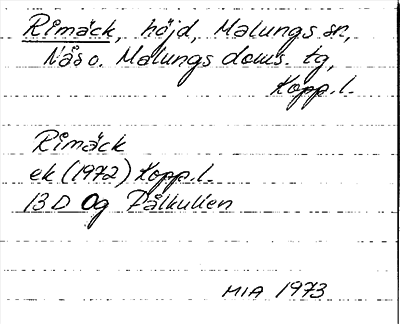 Rimäck, höjd, Malungs sn,
Nås o. Malungs doms. tg,
Kopp. l.
Rimäck
ek (1972) Kopp. l.
13 D Og Pålkullen
MIA 1973